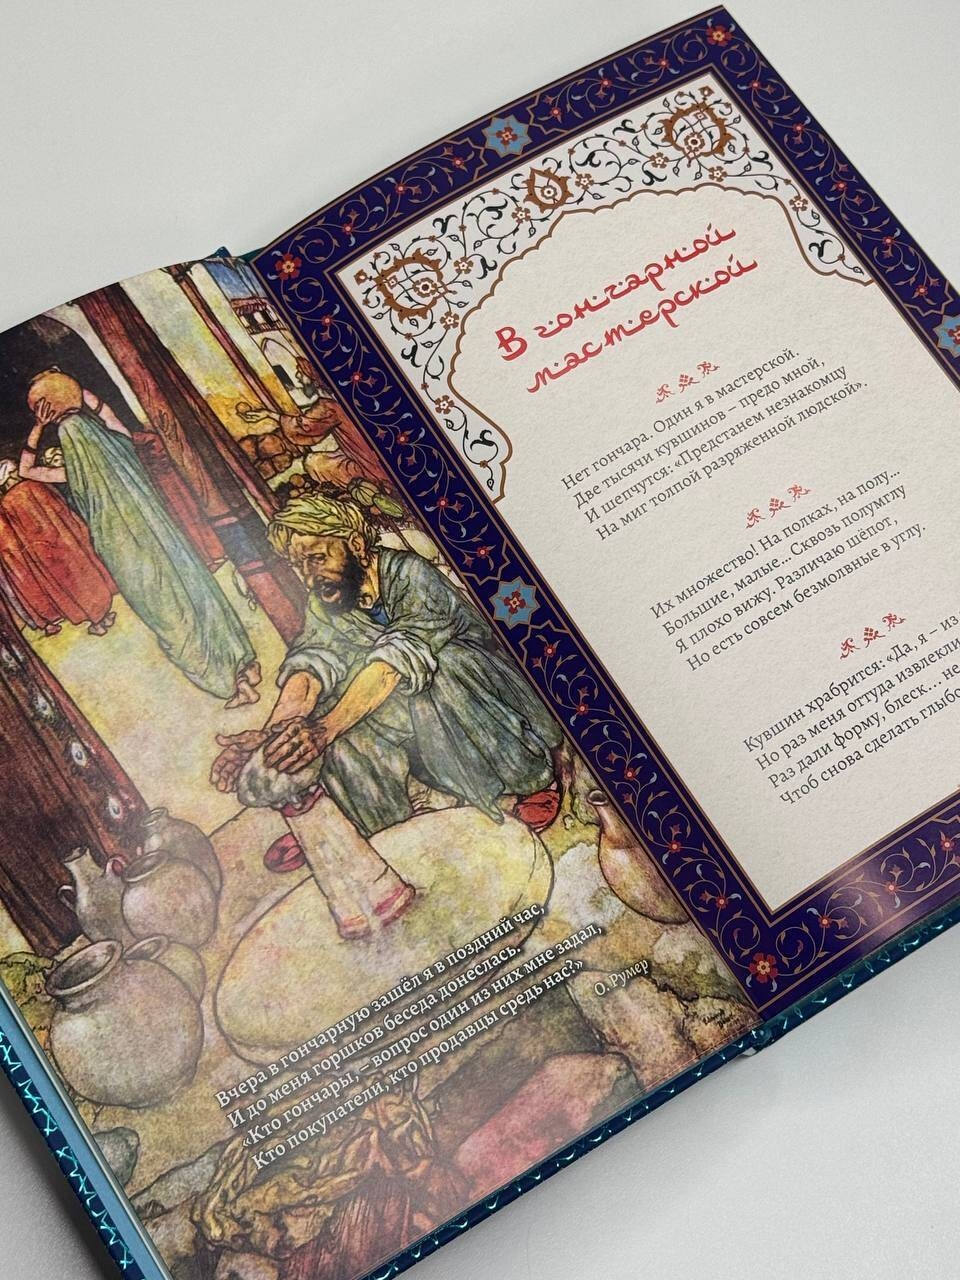 Вчера в гончарную зашёл я в поздний час,
И до меня горшков беседа донеслась.
«Кто гончары, – вопрос один из них мне задал,
Кто покупатели, кто продавцы средь нас?»
О. Румер
В гончарной
мастерской
Нет гончара. Один я в мастерской.
Две тысячи кувшинов – предо мной,
И шепчутся: «Предстанем незнакомцу
На миг толпой разряженной людской».
Их множество! На полках, на полу...
Большие, малые... Сквозь полумглу
Я плохо вижу. Различаю шёпот,
Но есть совсем безмолвные в углу.
Кувшин храбрится: «Да, я – из
Но раз меня оттуда извлекли
Раз дали форму, блеск... не
Чтоб снова сделать